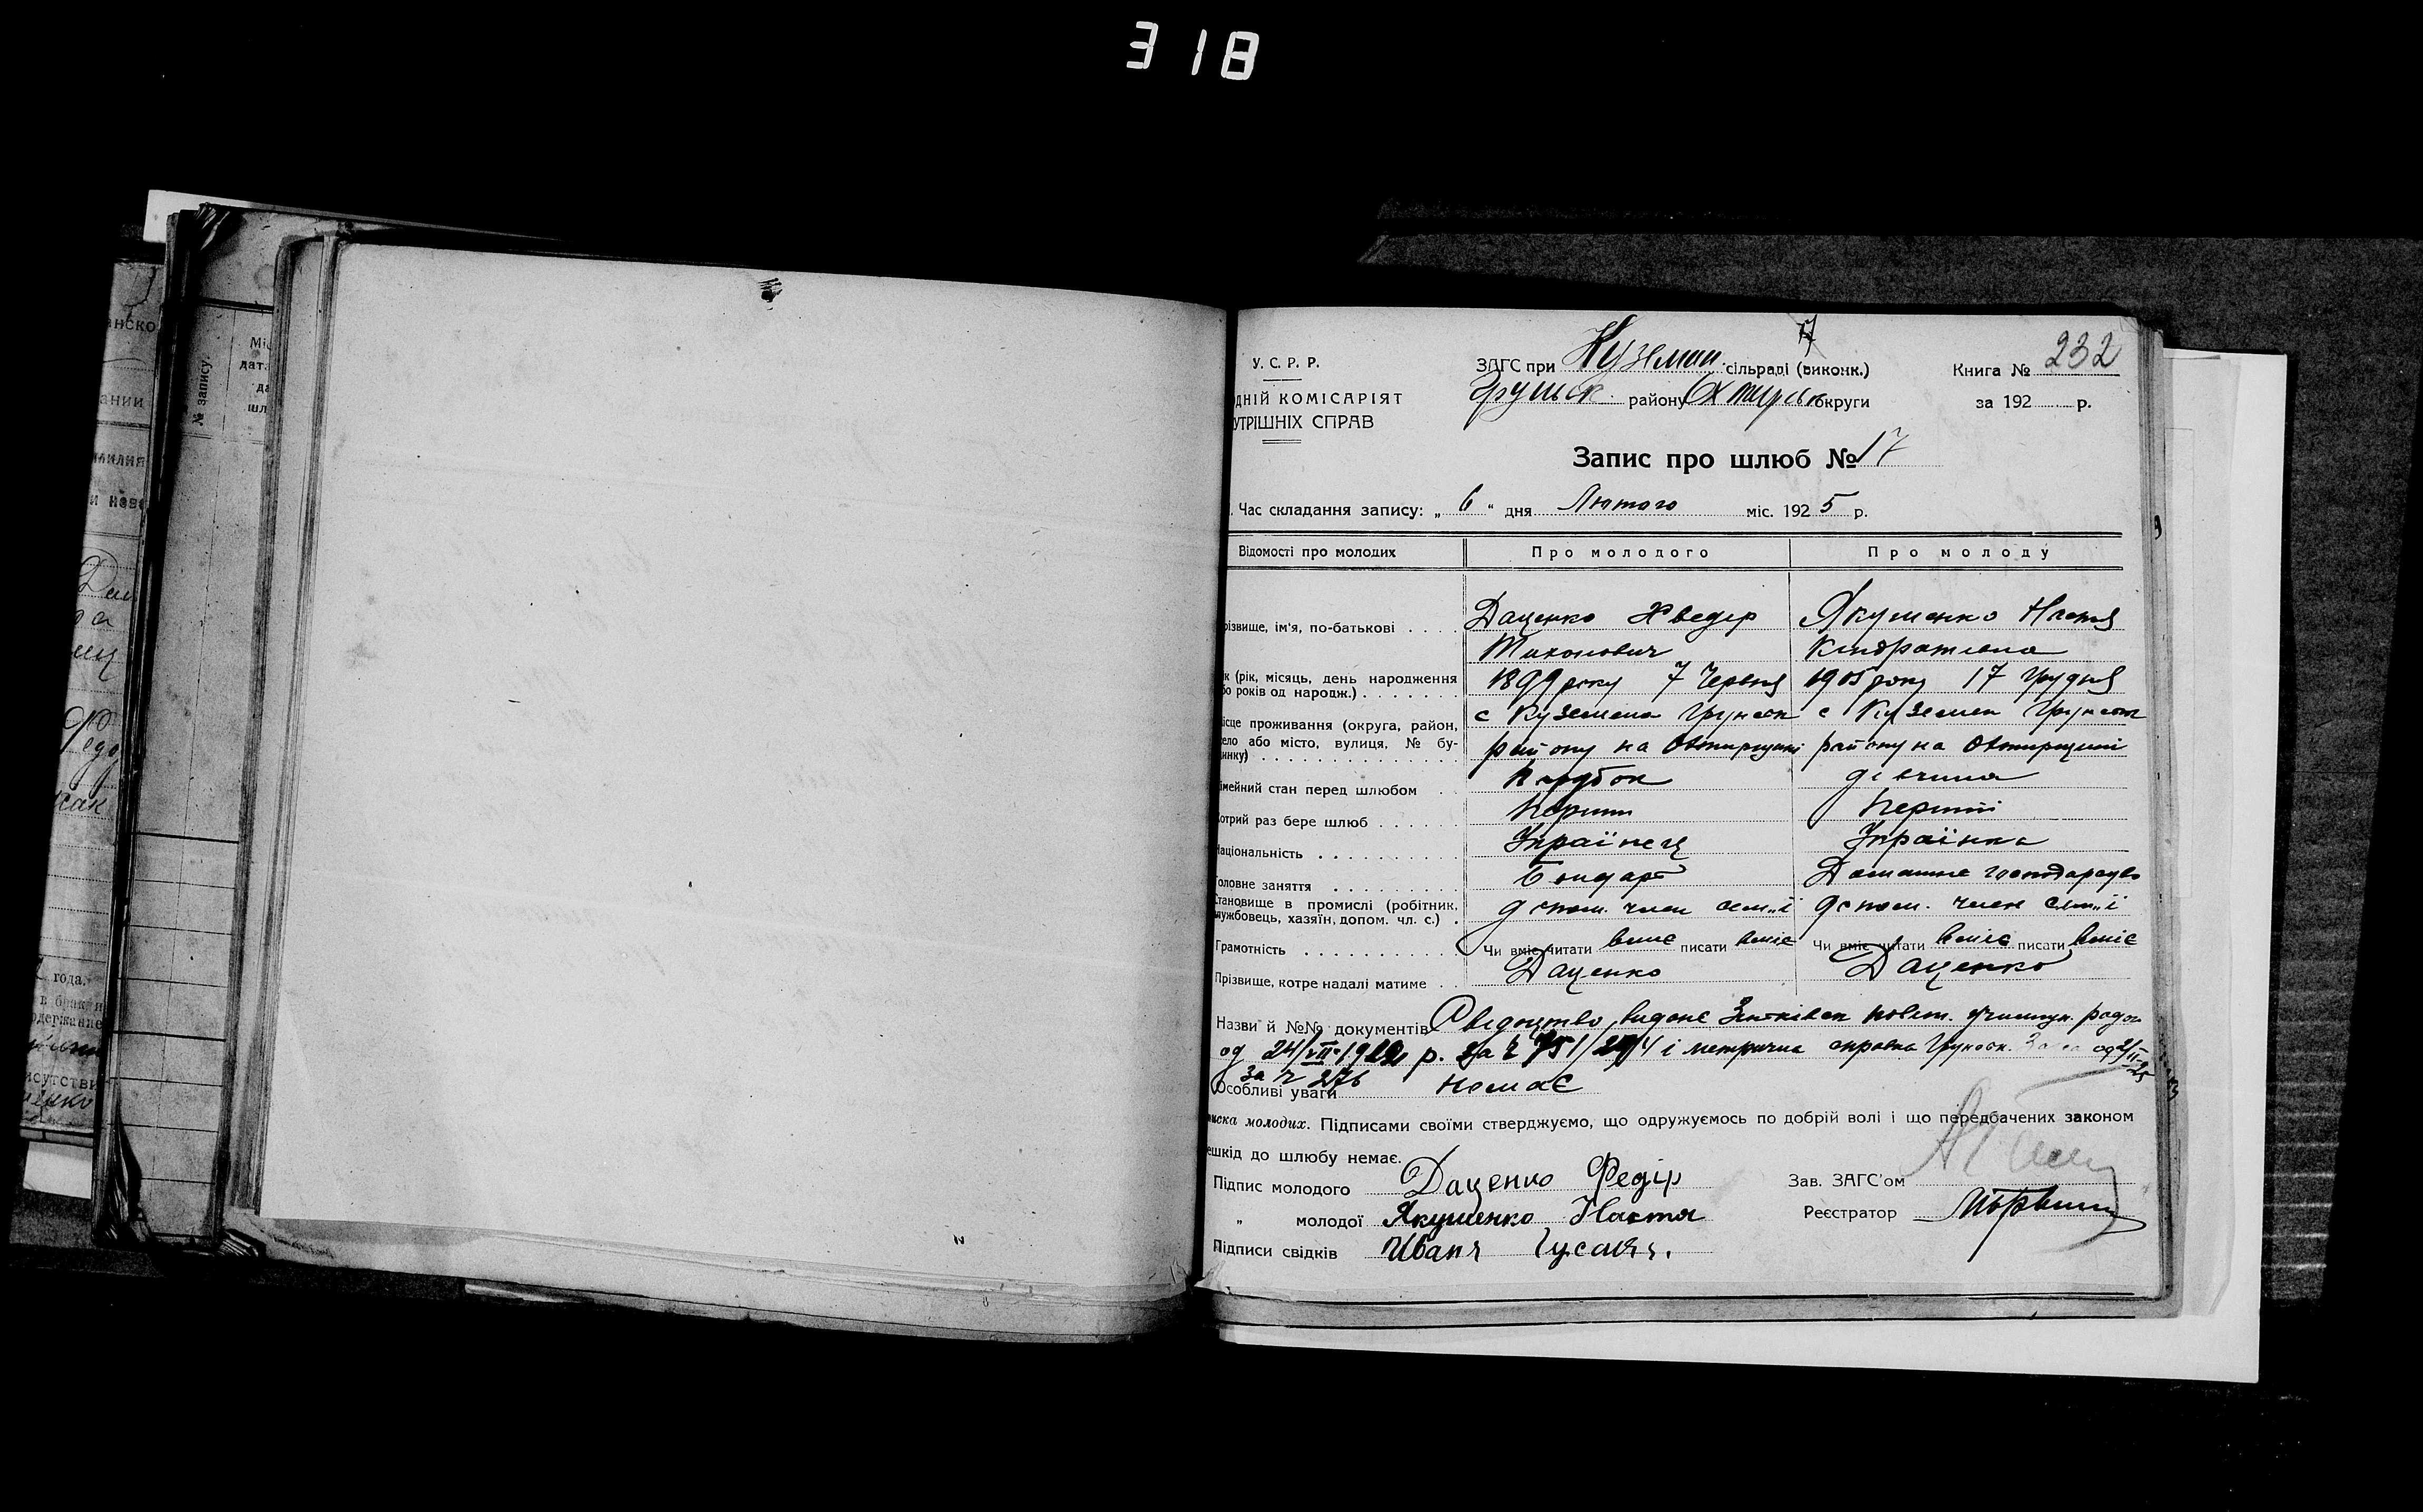 318
анско
ании
милия
и назв
Дац
№ запису.
Міс
дат
да
шл
года.
в брак и
одержание
исутстви
У. С. Р. Р.
ОДНІЙ КОМІСАРІЯТ
УТРІШНІХ СПРАВ
ЗАГС при Куземин сільраді (виконк.)
Груньск. району Охтирськ округи
Книга № 232
за 192 р.
Запис про шлюб № 17
Час складання запису: „ 6 “ дня Лютого міс. 1925 р.
Відомості про молодих Про молодого Про молоду
різвище, ім'я, по-батькові Даценко Хведір Якушенко Настя
Тихонович Кіндратівна
к (рік, місяць, день народження 1899 року 7 Червня 1905 року 17 Грудня
бо років од народж.)
ісце проживання (округа, район, с Куземена Грунськ с Куземен Грунськ
ело або місто, вулиця, № бу- району на Охтирщині району на Охтирщині
инку)
імейний стан перед шлюбом Парубок дівчина
отрий раз бере шлюб Перший Перший
аціональність Українець Українка
Головне заняття Бондарь Домашнє господарство
Становище в промислі (робітник, допом. член сем„ї допом. член сем„ї
лужбовець, хазяїн, допом. чл. с.)
Грамотність Чи вміє читати вміє писати вміє Чи вміє читати вміє писати вміє
Прізвище, котре надалі матиме Даценко Даценко
Назви й №№ документів Свідоцтво видане Зінківск повіт.
од 24/VII 1922 р. за і метрична справка Грунськ. од 2/II-25
за № 276
Особливі уваги немає
иска молодих. Підписами своїми стверджуємо, що одружуємось по добрій волі і що передбачених законом
ешкід до шлюбу немає.
Підпис молодого Даценко Федір
Зав. ЗАГС'ом
„ молодої Якушенко Настя
Реєстратор
Підписи свідків Иванъ Гусакъ.